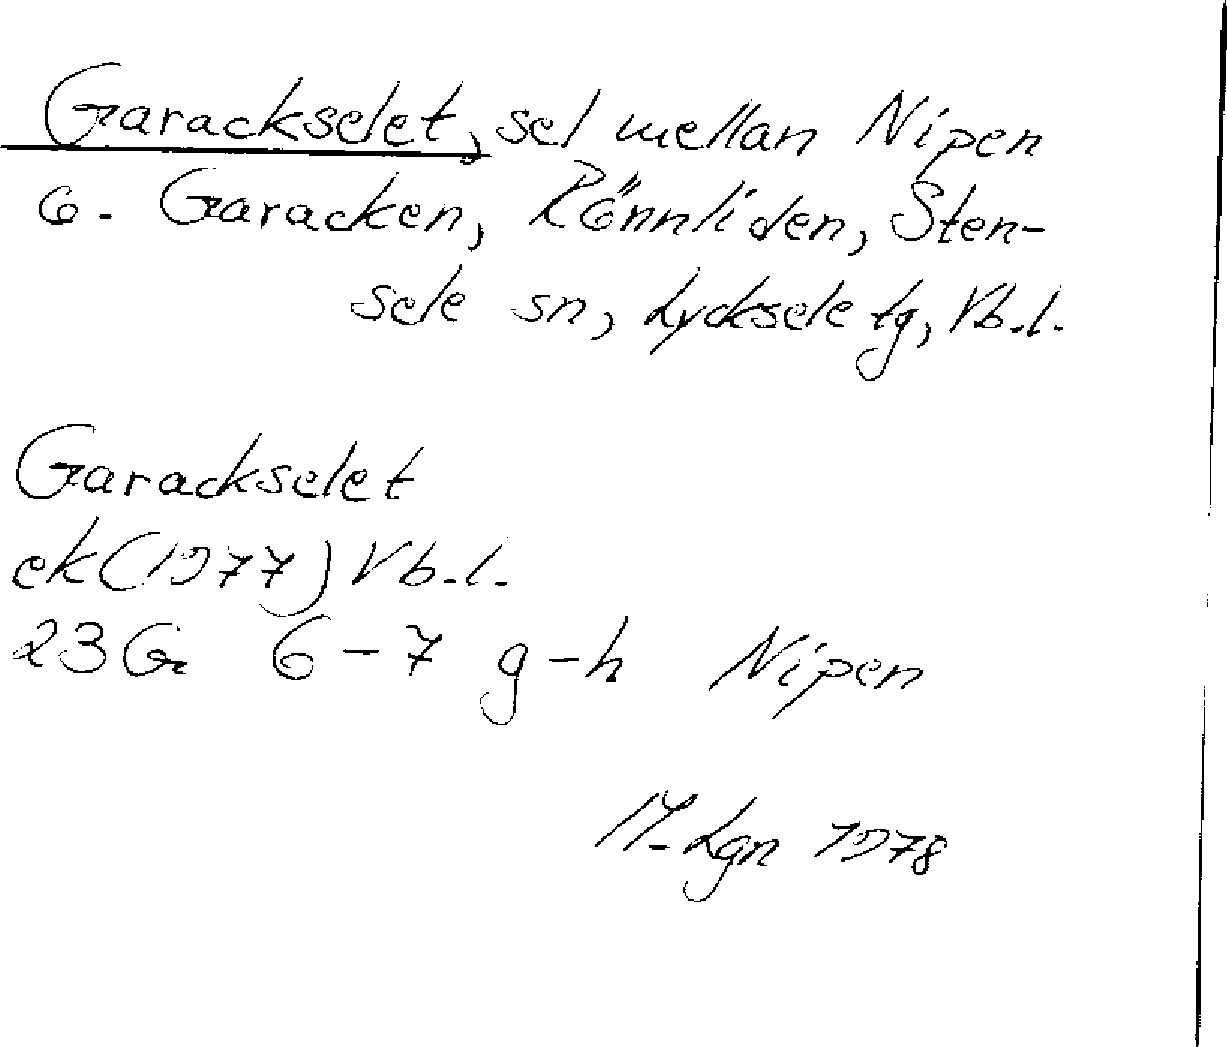 Garackselet, sel mellan Nipen
o. Garacken, Rönnliden, Sten-
sele sn, Lycksele tg, Vb.l.
Garackselet
ek (1977) Vb.l.
23G 6-7 g-h Nipen
M.Lgn 1978